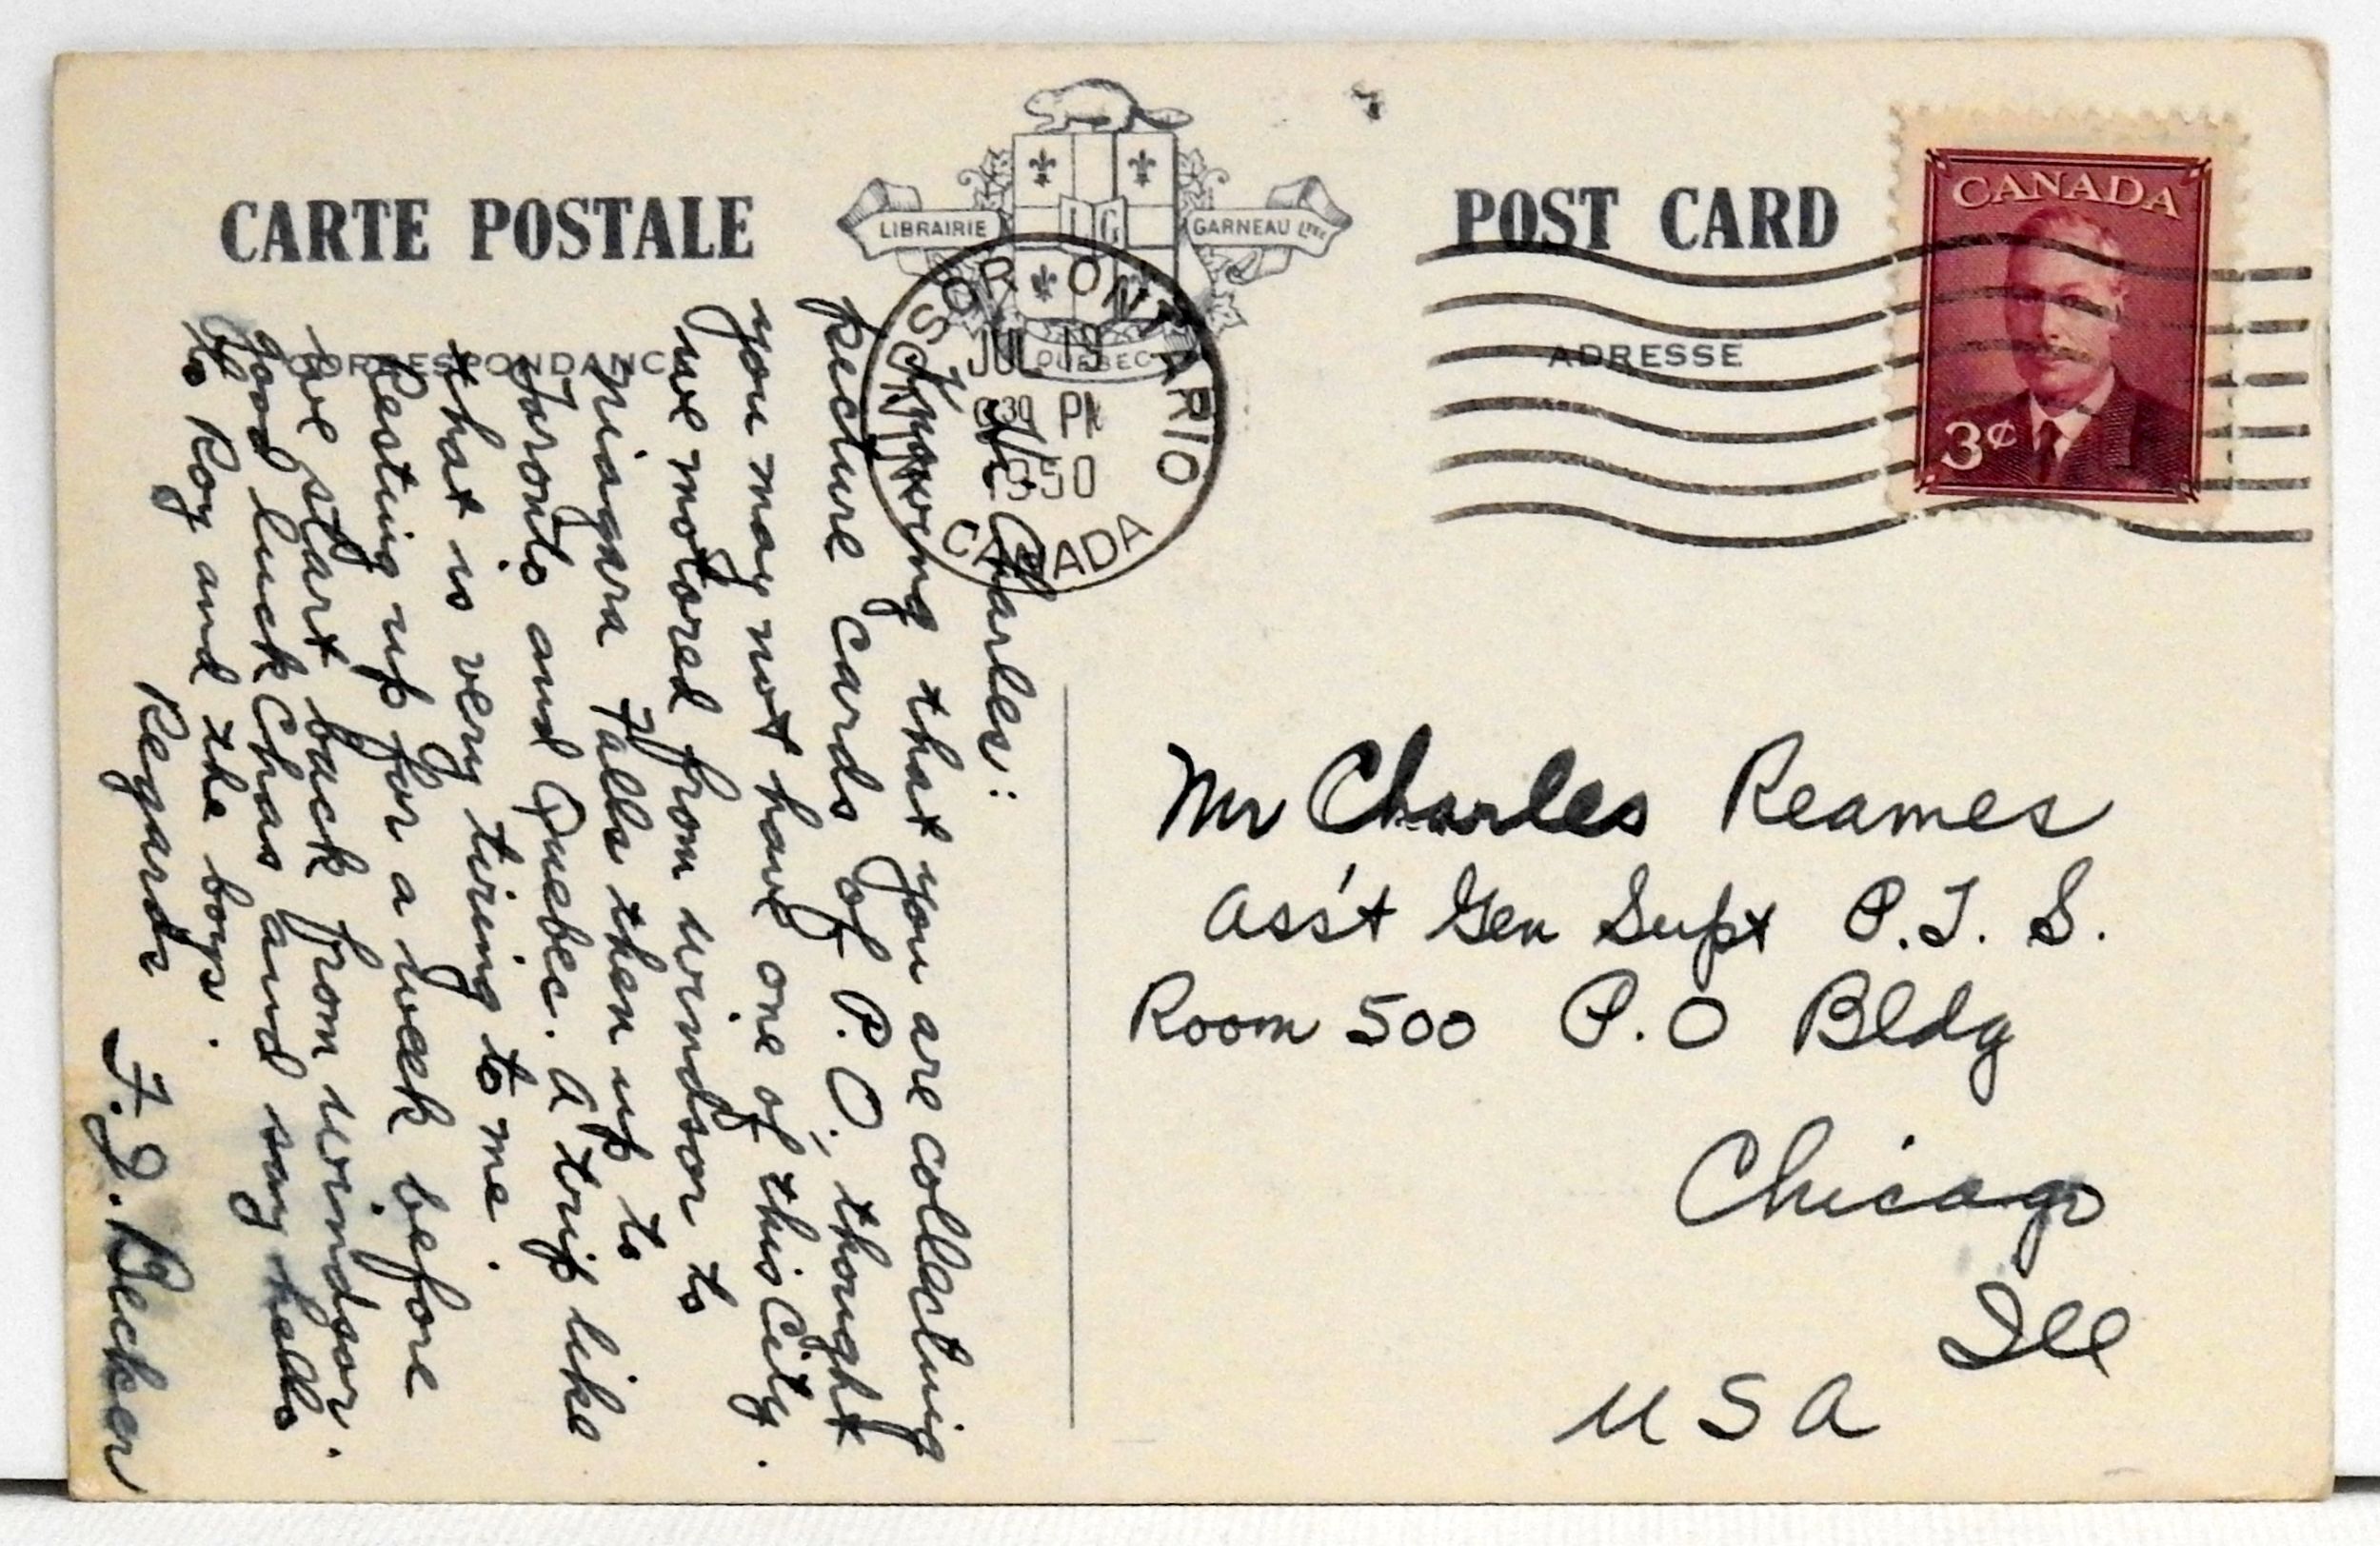 CARTE POSTALE
LIBRAIRIE
L G
GARNEAU Ltée
QUÉBEC
POST CARD
CORRESPONDANCE
ADRESSE
CANADA
3¢
WINDSOR ONTARIO
JUL 19
PM
1950
CANADA
Hi Charles:
Knowing that you are collecting
picture cards of P.O., thought
you may not have one of this City.
We motored from Windsor to
Niagara Falls then up to
Toronto and Quebec. A trip like
that is very tiring to me.
Resting up for a week before
we start back from Windsor.
Good luck Chas and say hello
to Roy and the boys.
Regards
F.J. Becker
Mr Charles Reames
Ass't Gen Supt P.T.S.
Room 500 P.O Bldg
Chicago
Ill
USA